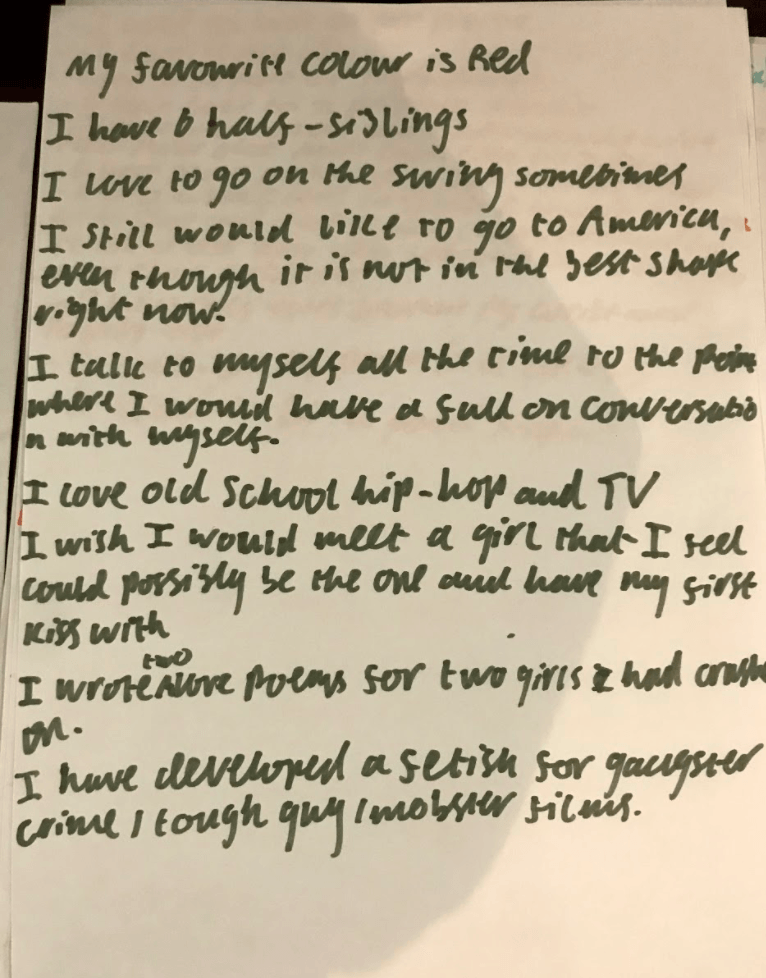 My favourite colour is Red
I have 6 half-siblings
I love to go on the swing sometimes
I still would like to go to America,
even though it is not in the best shape
right now.
I talk to myself all the time to the poin
where I would have a full on conversatio
n with myself.
I love old school hip-hop and TV
I wish I would meet a girl that I feel
could possibly be the one and have my first
kiss with
two
I wrote love poems for two girls I had crush
on.
I have developed a fetish for gangster
crime/tough guy/mobster films.